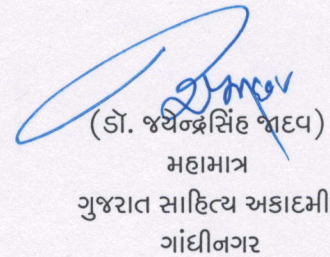 (ડૉ. જયેન્દ્રસિંહ જાદવ)
મહામાત્ર
ગુજરાત સાહિત્ય અકાદમી
ગાંધીનગર